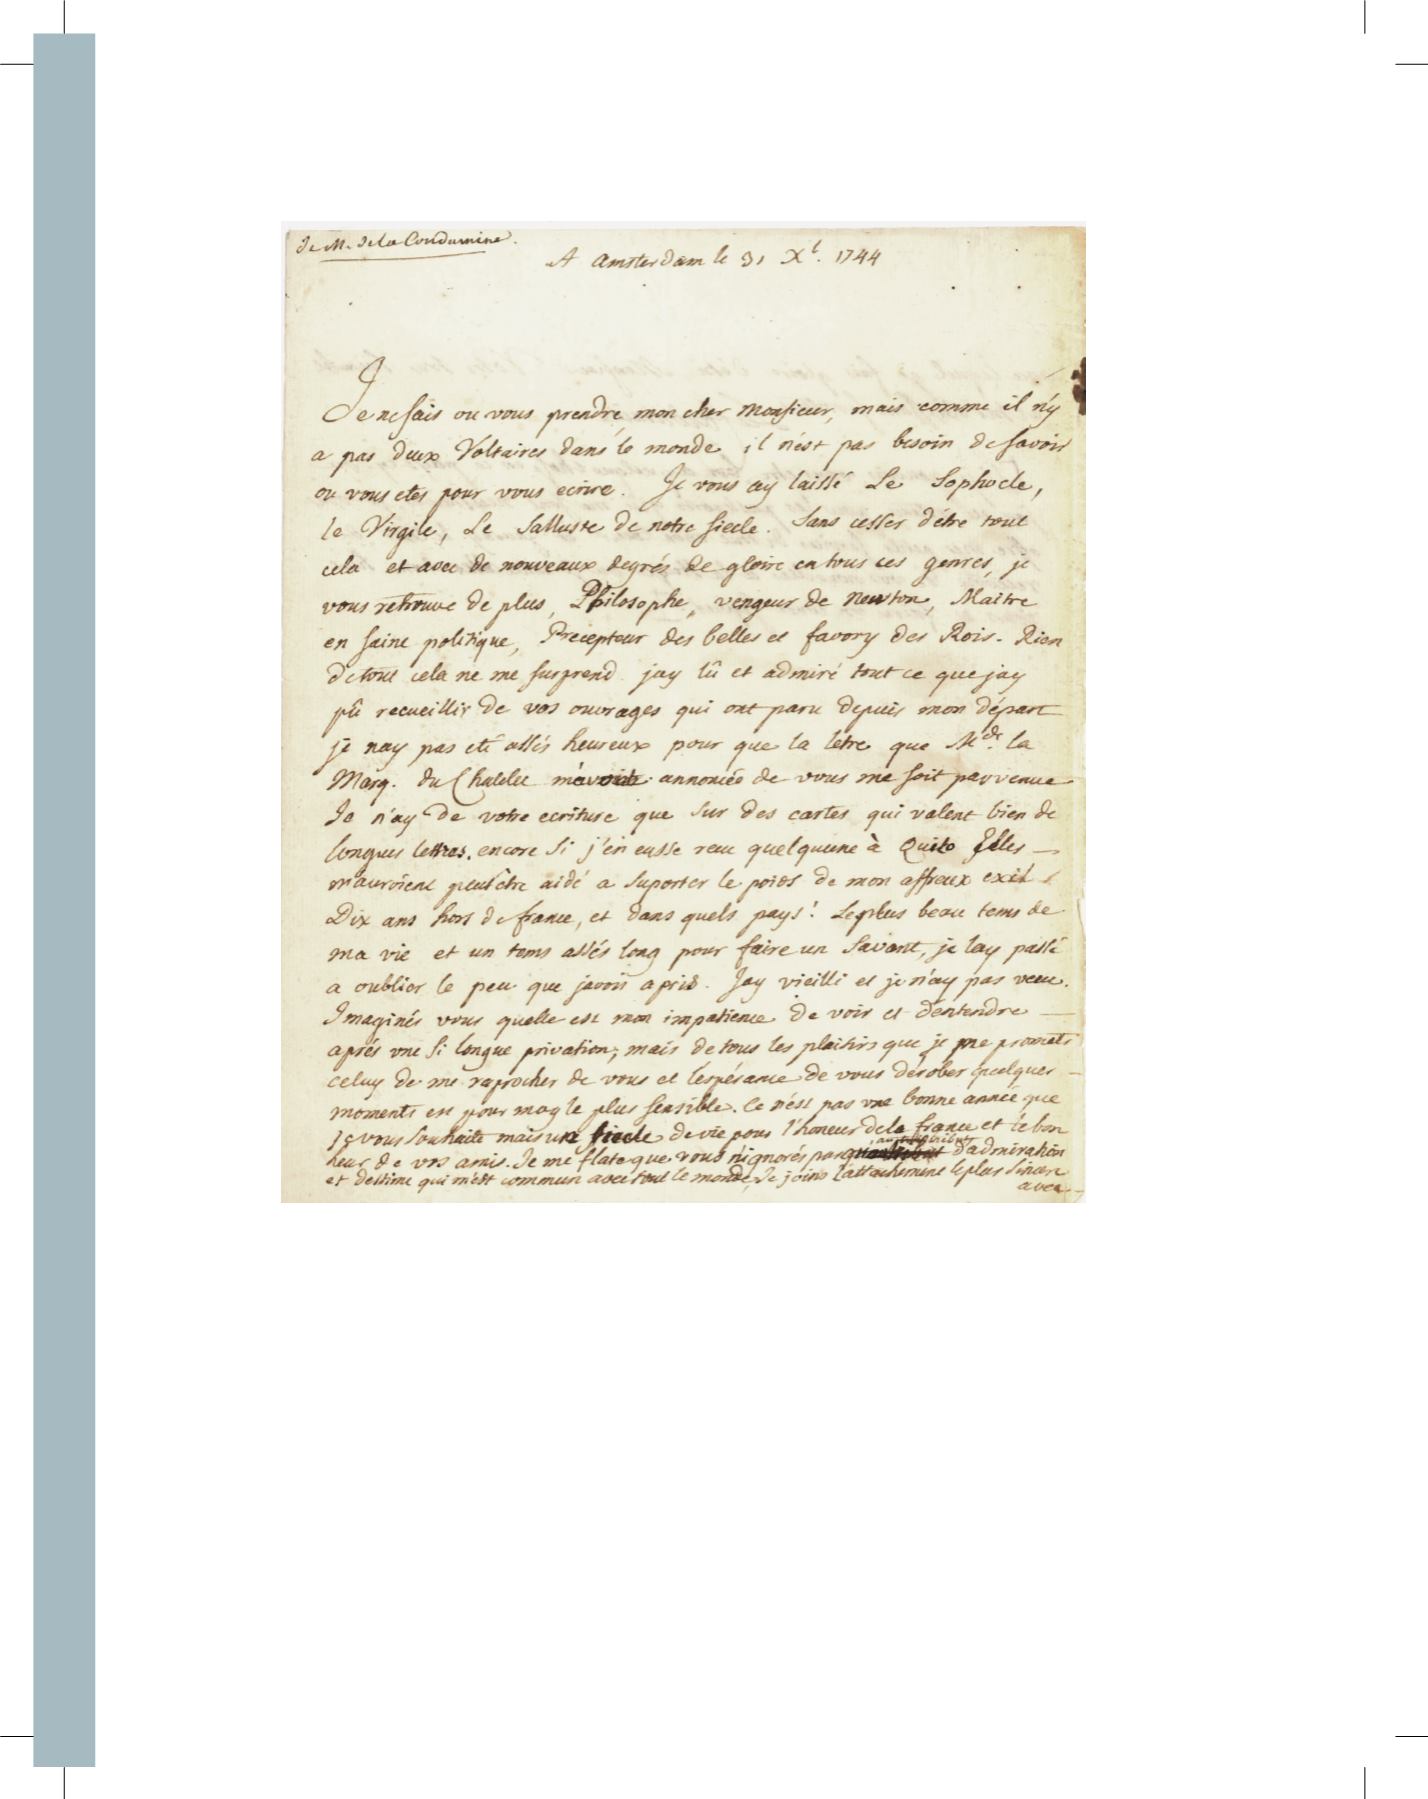 de M. de la Condamine.
A Amsterdam le 31 Xb. 1744
Je ne sais ou vous prendre, mon cher Monsieur, mais comme il n'y
a pas deux Voltaires dans le monde il n'est pas besoin de savoir
ou vous etes pour vous ecrire. Je vous ay laissé Le Sophocle,
le Virgile, Le Salluste de notre siecle. Sans cesser d'être tout
cela et avec de nouveaux degrés de gloire en tous ces genres, je
vous retrouve de plus, Philosophe, vengeur de Newton, Maitre
en saine politique, Precepteur des belles et favory des Rois. Rien
de tout cela ne me surprend. jay lû et admiré tout ce que jay
pû recueillir de vos ouvrages qui ont paru depuis mon départ
je nay pas eté assés heureux pour que la letre que Mde. la
Marq. du Chatelet m'avoit annoncée de vous me soit parvenue
Je n'ay de votre ecriture que sur des cartes qui valent bien de
longues lettres. encore si j'en eusse receu quelquune à Quito Elles
m'auroient peutêtre aidé a suporter le poids de mon affreux exil
Dix ans hors de france, et dans quels pays! Le plus beau tems de
ma vie et un tems assés long pour faire un Savant, je lay passé
a oublier le peu que javois apris. Jay vieilli et je n'ay pas vecu.
Imaginés vous quelle est mon impatience de voir et d'entendre
aprés une si longue privation; mais de tous les plaisirs que je me promets
celuy de me raprocher de vous et l'espérance de vous dérober quelques
moments est pour moy le plus sensible. Ce n'est pas une bonne année que
Je vous souhaite mais un siecle de vie pour l'honeur de la france et le bon
heur de vos amis. Je me flate que vous n'ignorés pas qu'au tribut d'admiration
et d'estime qui m'est commun avec tout le monde, Je joins l'attachement le plus sincere
avec